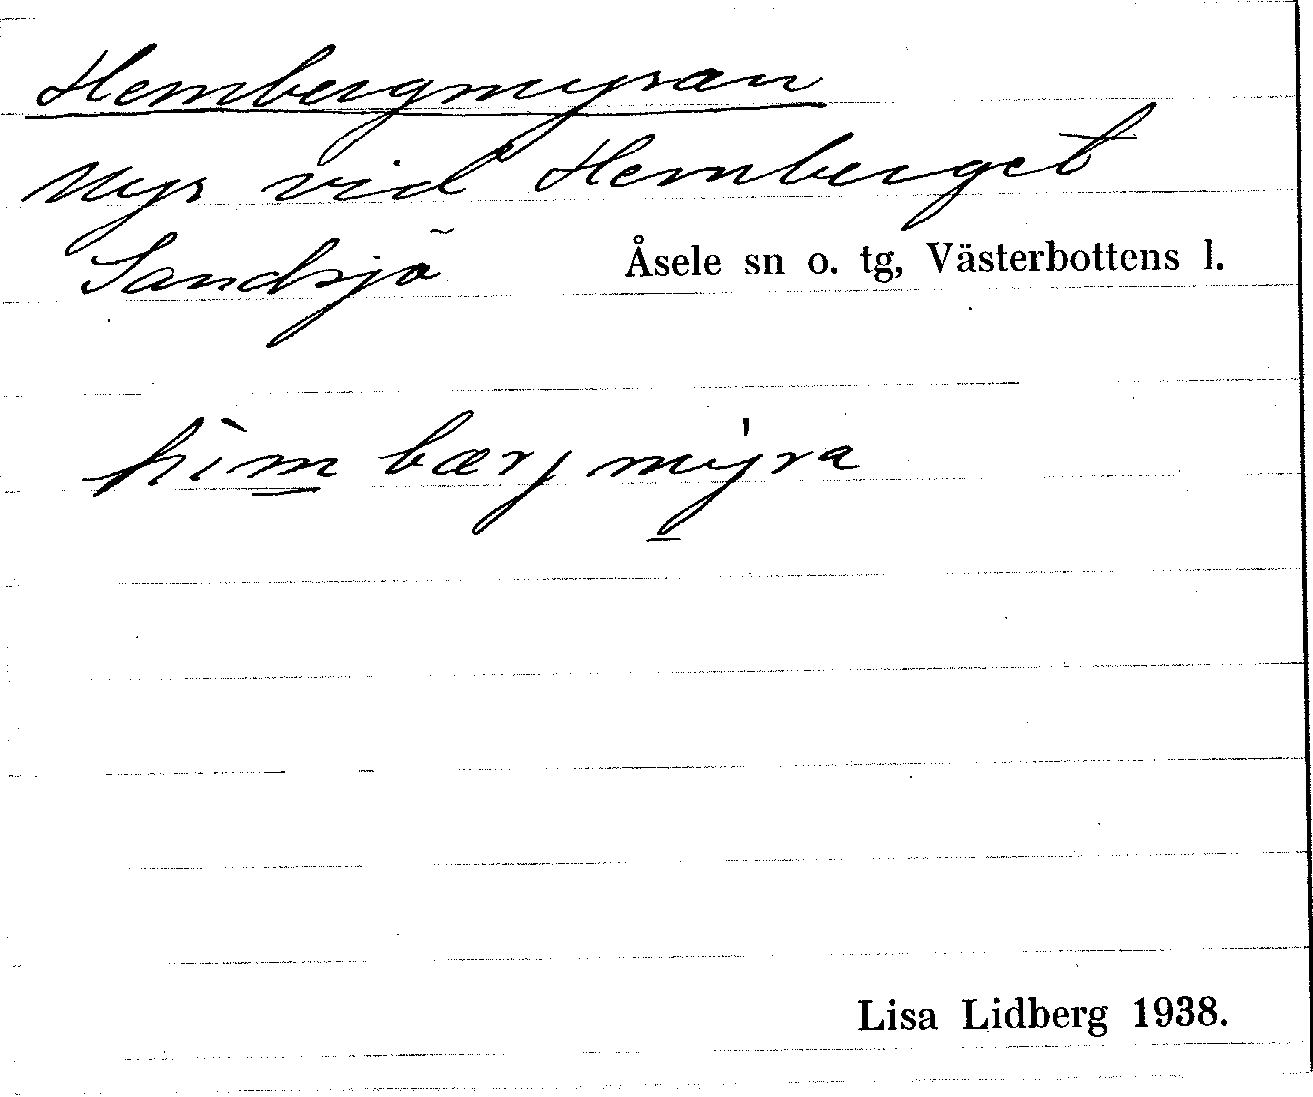 Hembergmyran
Myr vid Hemberget
Sandsjö Åsele sn o. tg, Västerbottens l.
hìm bærj my̍ra
Lisa Lidberg 1938.